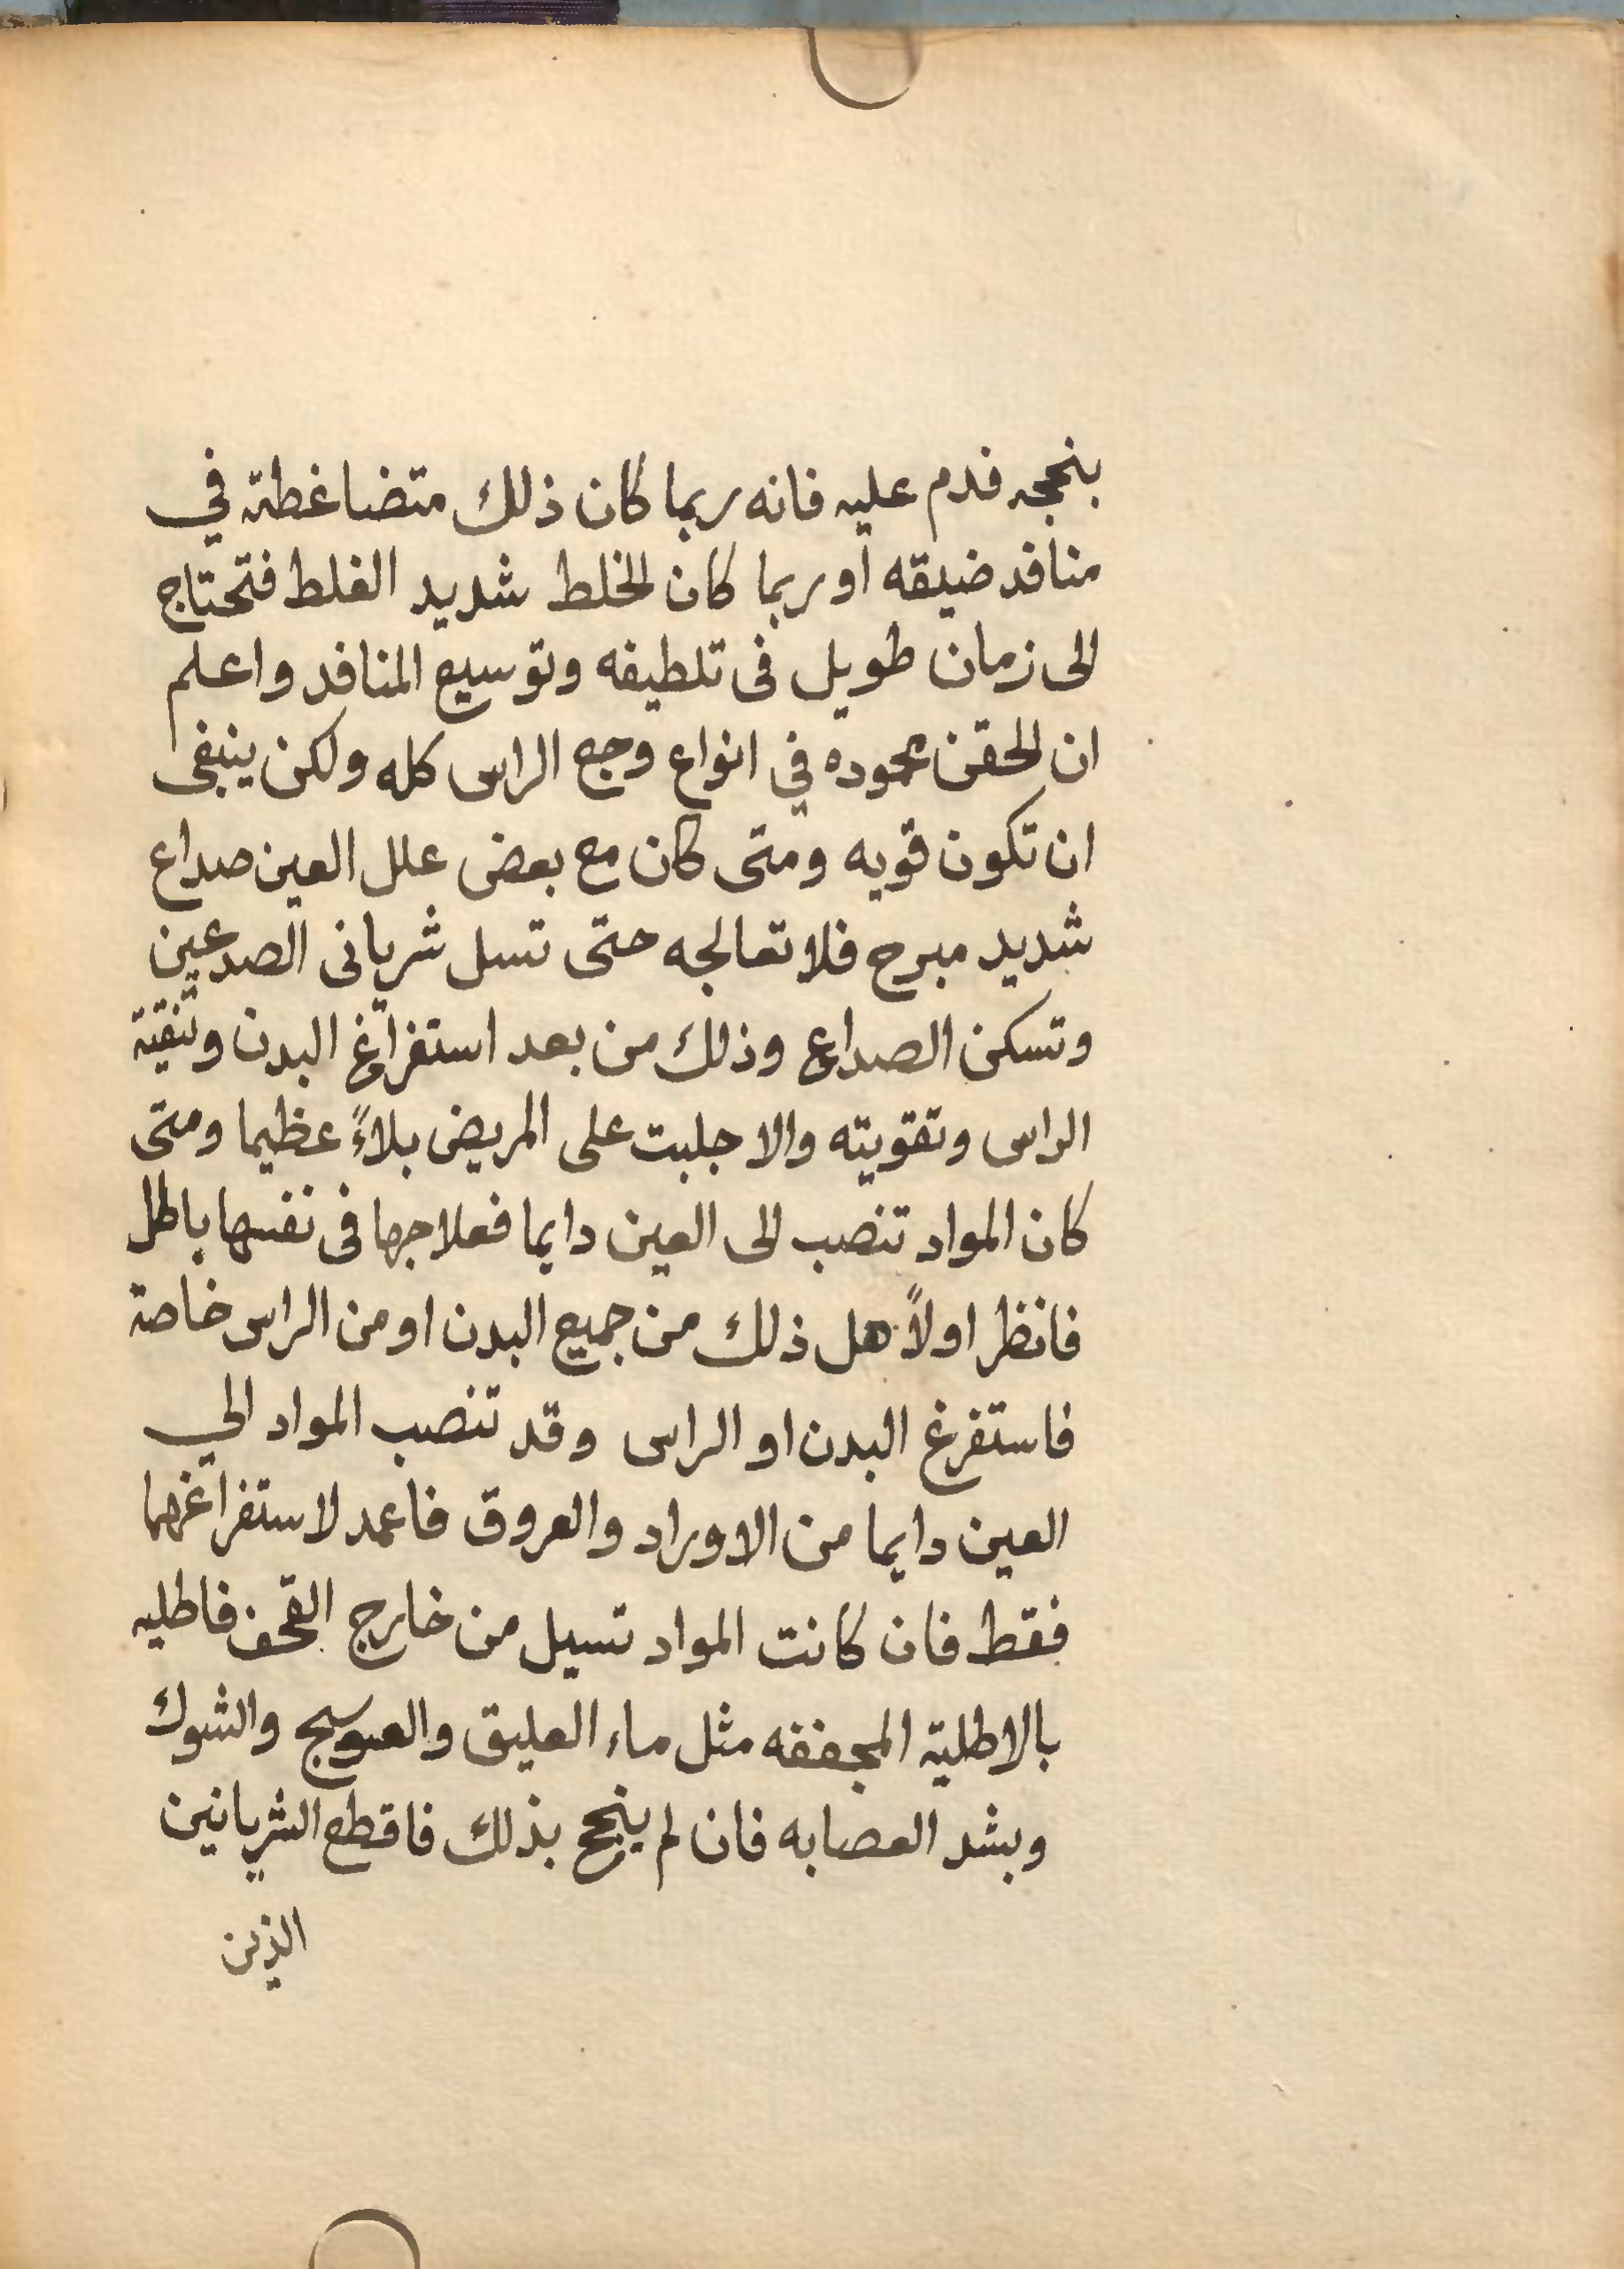 بنجحه فدم عليه فانه ربما كان ذلك متضاغطة في
منافد ضيقه او ربما كان الخلط شديد الغلط فتحتاج
الى زمان طويل فى تلطيفه وتوسيع المنافد واعلم
ان الحقن محموده في انواع وجع الراس كله ولكن ينبغى
ان تكون قويه ومتى كان مع بعض علل العين صداع
شديد مبرح فلا تعالجه حتى تسل شريانى الصدعين
وتسكن الصداع وذلك من بعد استفراغ البدن وتنقية
الراس وتقويته والا جلبت على المريض بلاءً عظيما ومتى
كان المواد تنصب الى العين دايما فعلاجها فى نفسها باطل
فانظر اولاً هل ذلك من جميع البدن او من الراس خاصة
فاستفرغ البدن او الراس وقد تنصب المواد الي
العين دايما من الاوراد والعروق فاعمد لاستفراغهما
فقط فان كانت المواد تسيل من خارج القحف فاطليه
بالاطلية المجففه مثل ماء العليق والعوسج والشوك
وبشد العصابه فان لم ينجح بذلك فاقطع الشريانين
الذين